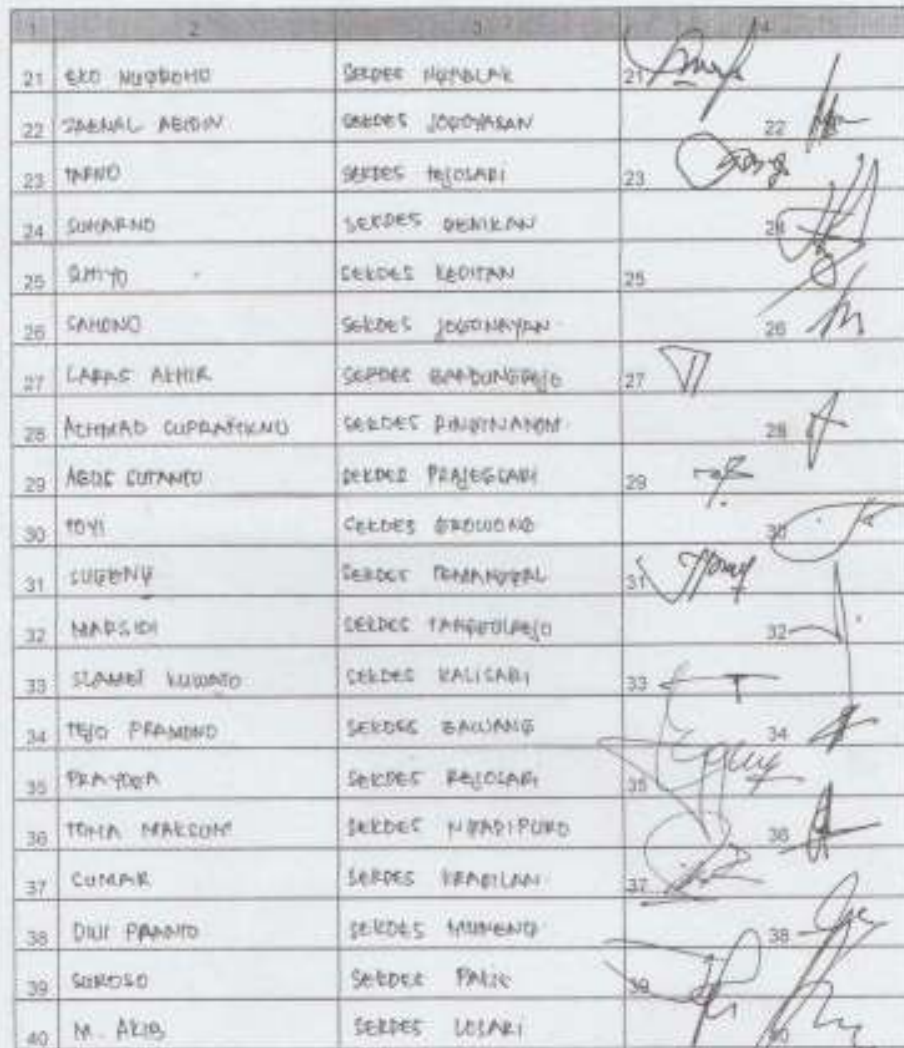 1 2 3 4
21 EKO NUGROHO SEKDES NGABLAK 21
22 ZAENAL ABIDIN SEKDES JOGOYASAN 22
23 TARNO SEKDES TEJOSARI 23
24 SUMARNO SEKDES GENIKAN 24
25 SEKDES KEDITAN 25
26 SAMONO SEKDES JOGONAYAN 26
27 LARAS AKHIR SEKDES BANDUNGREJO 27
28 ACHMAD SUPRATIKNO SEKDES PINGINANOM 28
29 AGUS SUTANTO SEKDES PRAJEGSARI 29
30 TOYI SEKDES GROWONG 30
31 SUGENG SEKDES TEMANGGAL 31
32 MARSIDI SEKDES 32
33 SLAMET KUWATO SEKDES KALISARI 33
34 TEJO PRAMONO SEKDES BAWANG 34
35 PRAYOGA SEKDES REJOSARI 35
36 TOHA MAKSUM SEKDES NGADIPURO 36
37 SUMAR SEKDES KRADILAN 37
38 DWI PRANTO SEKDES MUNENG 38
39 SUROSO SEKDES PAKIS 39
40 M. AKIB SEKDES LOSARI 40